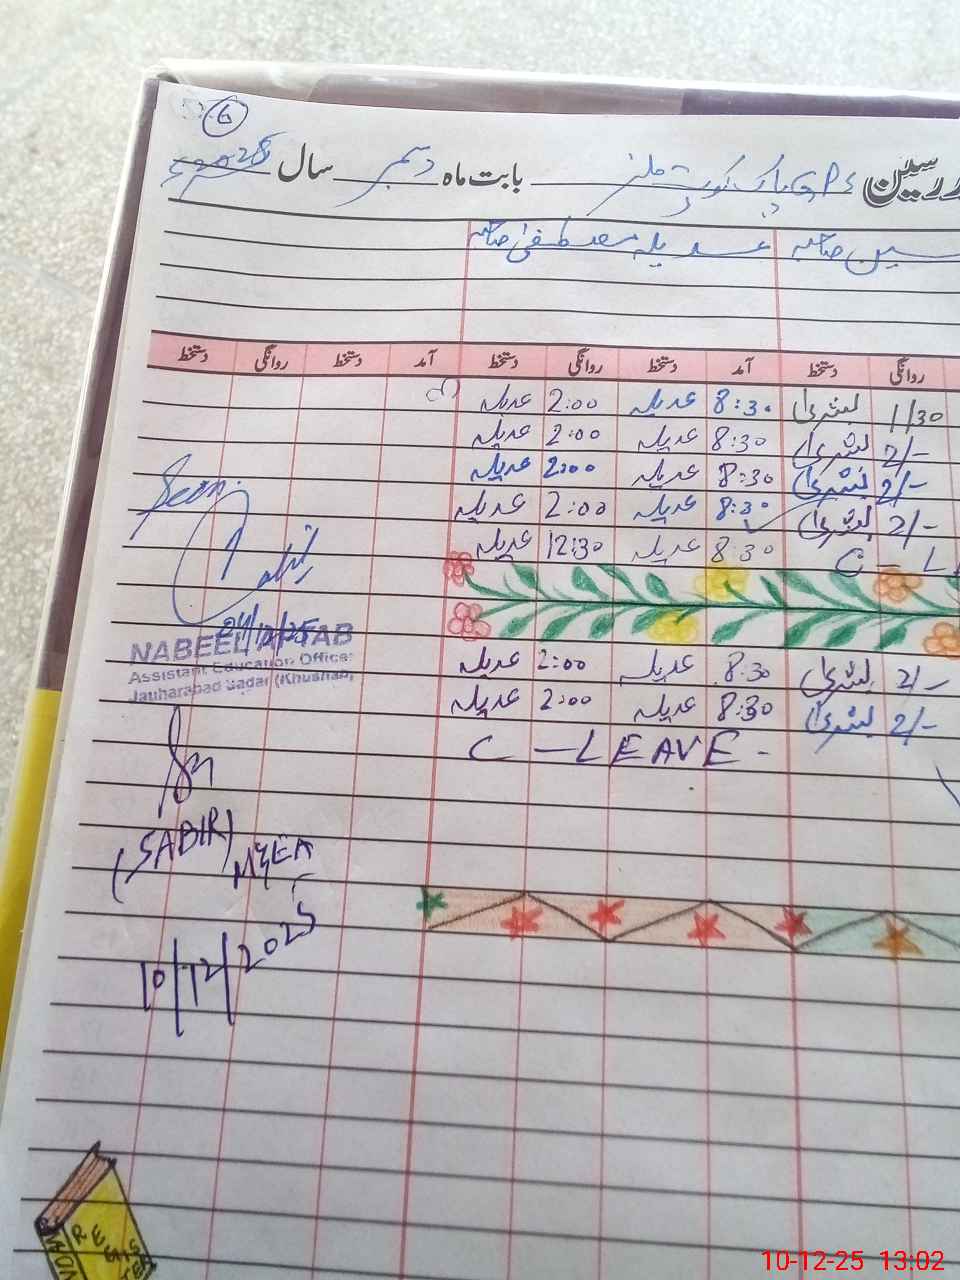 6
رسین GPS پاک کوٹ ملز بابت ماہ دسمبر سال 2025
سین صاحبہ عدیلہ مصطفیٰ صاحبہ
روانگی دستخط آمد دستخط روانگی دستخط آمد دستخط روانگی دستخط
1/30 بشریٰ 8:30 عدیلہ 2:00 عدیلہ
2/- بشریٰ 8:30 عدیلہ 2:00 عدیلہ
2/- بشریٰ 8:30 عدیلہ 2:00 عدیلہ
2/- بشریٰ 8:30 عدیلہ 2:00 عدیلہ
C - L 8:30 عدیلہ 12:30 عدیلہ
Seen.
04/12/25
NABEEL AFTAB
Assistant Education Officer
Jauharabad Sadar (Khushab)
2/- بشریٰ 8:30 عدیلہ 2:00 عدیلہ
2/- بشریٰ 8:30 عدیلہ 2:00 عدیلہ
C - LEAVE -
(SABIR)
M&EA
10/12/2025
10-12-25 13:02